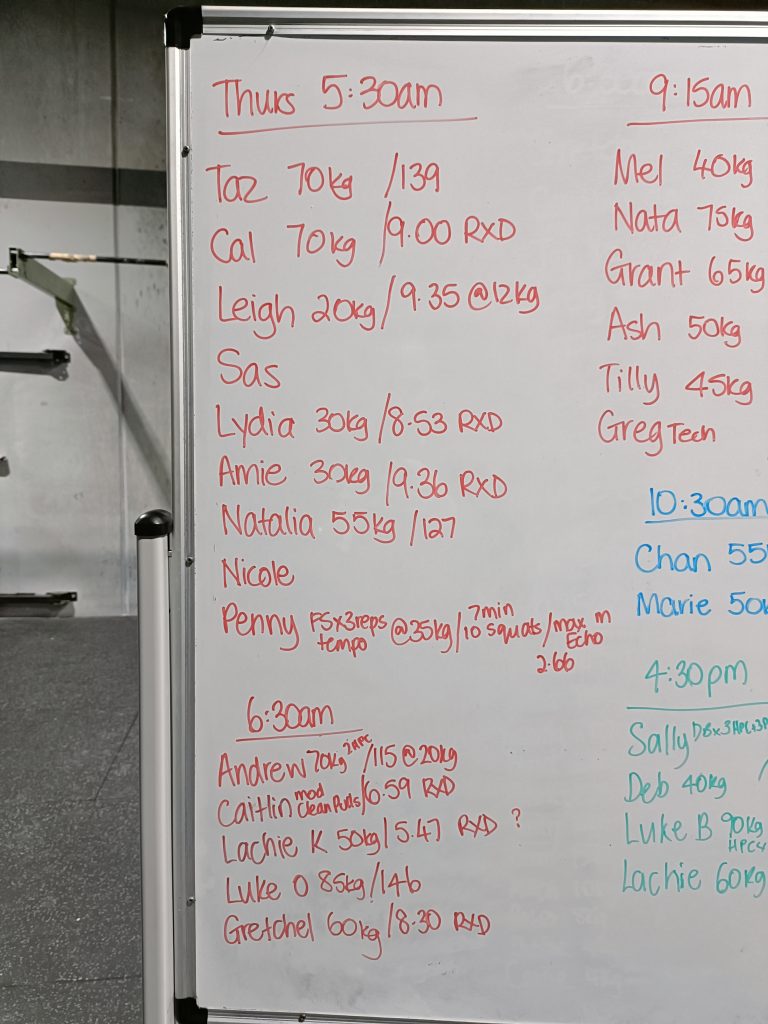 Thurs 5:30am
Taz 70kg /139
Cal 70kg /9.00 RXD
Leigh 20kg/9.35 @12kg
Sas
Lydia 30kg/8.53 RXD
Amie 30kg /9.36 RXD
Natalia 55kg /127
Nicole
Penny FSx3reps tempo @35kg/7min 10 squats/max m Echo
2.66
6:30am
Andrew 70kg 2HPC/115 @20kg
Caitlin mod Clean Pulls/6.59 RXD
Lachie K 50kg/5.47 RXD ?
Luke O 85kg/146
Gretchel 60kg/8.30 RXD
9:15am
Mel 40kg
Nata 75kg
Grant 65kg
Ash 50kg
Tilly 45kg
Greg Tech
10:30am
Chan 55
Marie 50k
4:30pm
Sally DBx3HPC+3P
Deb 40kg /
Luke B 90kg
HPC4
Lachie 60kg